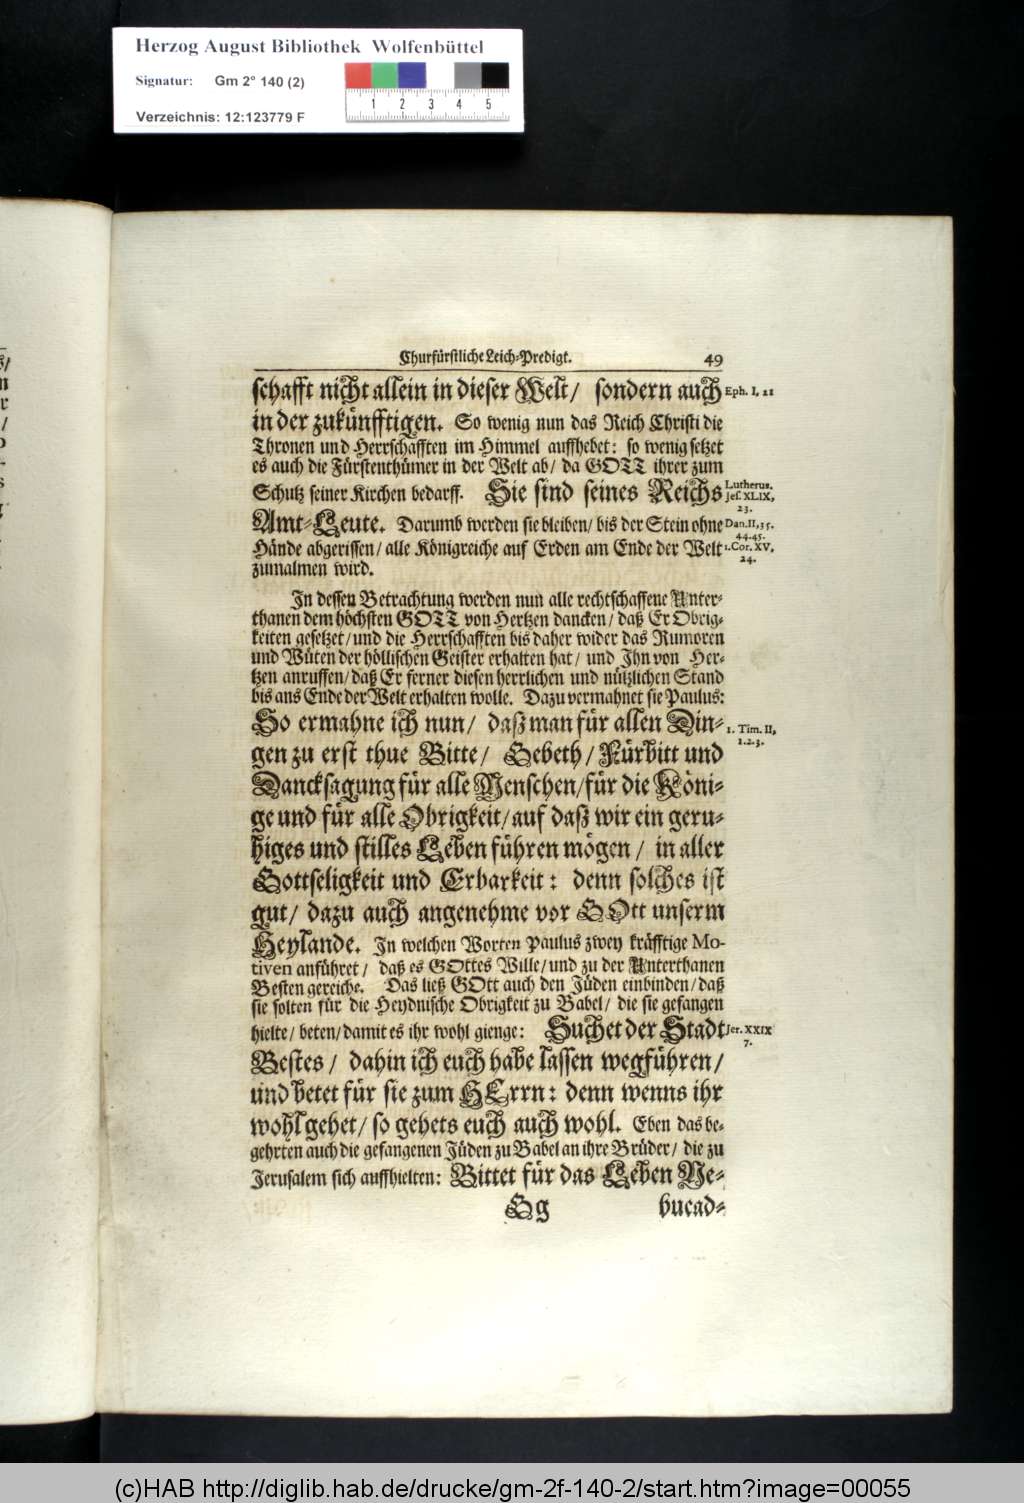 Herzog August Bibliothek Wolfenbüttel
Signatur: Gm 2° 140 (2)
Verzeichnis: 12:123779 F
1 2 3 4 5
Churfürstliche Leich-Predigt. 49
schafft nicht allein in dieser Welt/ sondern auch Eph. I, 21
in der zukünfftigen. So wenig nun das Reich Christi die
Thronen und Herrschafften im Himmel auffhebet: so wenig setzet
es auch die Fürstenthümer in der Welt ab/ da GOTT ihrer zum
Schutz seiner Kirchen bedarff. Sie sind seines Reichs Lutherus. Jes. XLIX, 23.
Amt-Leute. Darumb werden sie bleiben/ bis der Stein ohne Dan. II, 35. 44.45.
Hände abgerissen/ alle Königreiche auf Erden am Ende der Welt 1. Cor. XV, 24.
zumalmen wird.
In dessen Betrachtung werden nun alle rechtschaffene Unter-
thanen dem höchsten GOTT von Hertzen dancken/ daß Er Obrig-
keiten gesetzet/ und die Herrschafften bis daher wider das Rumoren
und Wüten der höllischen Geister erhalten hat/ und Ihn von Her-
tzen anruffen/ daß Er ferner diesen herrlichen und nützlichen Stand
bis ans Ende der Welt erhalten wolle. Dazu vermahnet sie Paulus:
So ermahne ich nun/ daß man für allen Din- 1. Tim. II, 1.2.3.
gen zu erst thue Bitte/ Gebeth/ Fürbitt und
Dancksagung für alle Menschen/ für die Köni-
ge und für alle Obrigkeit/ auf daß wir ein geru-
higes und stilles Leben führen mögen/ in aller
Gottseligkeit und Erbarkeit: denn solches ist
gut/ dazu auch angenehme vor GOtt unserm
Heylande. In welchen Worten Paulus zwey kräfftige Mo-
tiven anführet/ daß es GOttes Wille/ und zu der Unterthanen
Besten gereiche. Das ließ GOtt auch den Jüden einbinden/ daß
sie solten für die Heydnische Obrigkeit zu Babel/ die sie gefangen
hielte/ beten/ damit es ihr wohl gienge: Suchet der Stadt Jer. XXIX 7.
Bestes/ dahin ich euch habe lassen wegführen/
und betet für sie zum HErrn: denn wenns ihr
wohl gehet/ so gehets euch auch wohl. Eben das be-
gehrten auch die gefangenen Jüden zu Babel an ihre Brüder/ die zu
Jerusalem sich auffhielten: Bittet für das Leben Ne-
Gg bucad-
(c)HAB http://diglib.hab.de/drucke/gm-2f-140-2/start.htm?image=00055